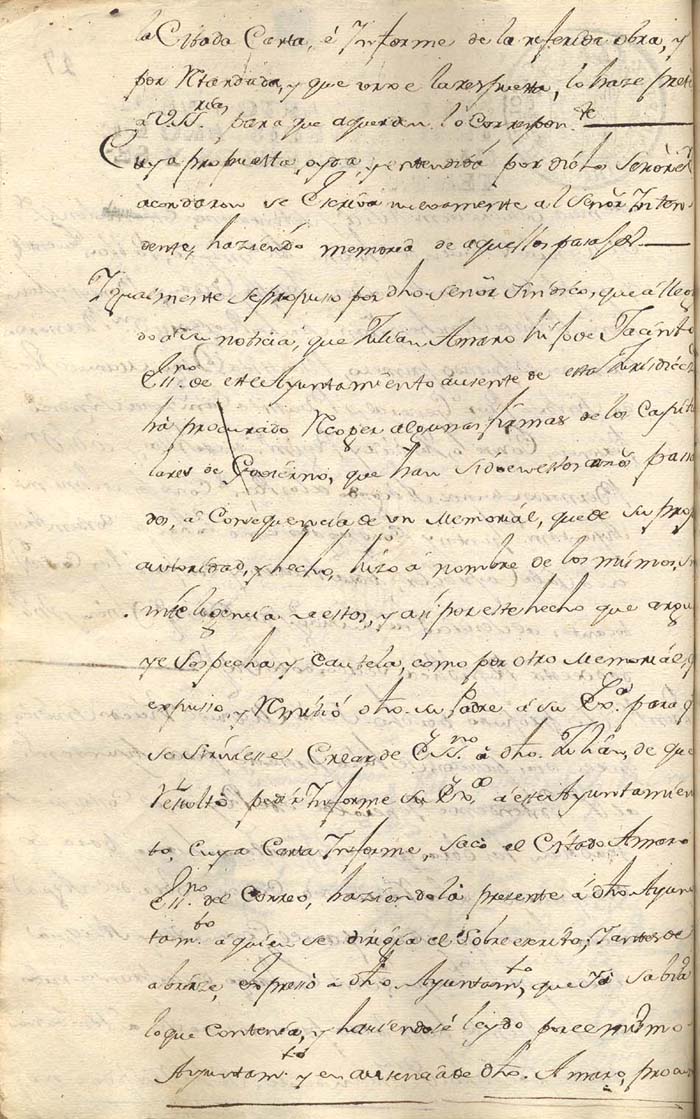 la Citada Carta, é Informe de la referida obra, y
por Ntardada, y que urxe la respuesta, lo haze pres
á VSS.rias para que aquerdan lo Correspon.te
Cuya propuesta, oyda, y entendida por dichos Señores
acordaron se Escriva nuevamente al Señor Inten
dente, haziendo memoria de aquellos
Igualmente se propuso por dho Señor Sindico, que á lleg
do á su noticia, que Julian Amaro hijo de Jacinto
Ess.no de este Ayuntamiento ausente de esta Jurisdicz
há procurado Ncoger algunas firmas de los Capitu
lares de Govierno, que han sido en estos años pasa
dos, á Consequencia de un Memorial, que de su prop
autoridad, y hecho, hizo á nombre de los mismos, s
intelixencia de estos, y así por este hecho que argu
ye Sospecha, y Cautela, como por otro Memorial, q
expusso, y Nmitió dho. su Padre á su Ex.a para q
se sirviesse Crear de Ess.no á dho. Julián, de que
Resultó pedir Informe su Ex.a á este Ayuntamien
to, Cuya Carta Informe, sacó el Citado Amaro
Ess.no del Correo, haziendola presente á dho Ayun
tam.to á quien se dirigia el Sobreescrito, Y antes de
abrirse, Expressó á dho Ayuntam.to, que Yá sabia
lo que Contenia, y haviendose leydo por el mismo
Ayuntam.to y en ausencia de dho. Amaro, procu